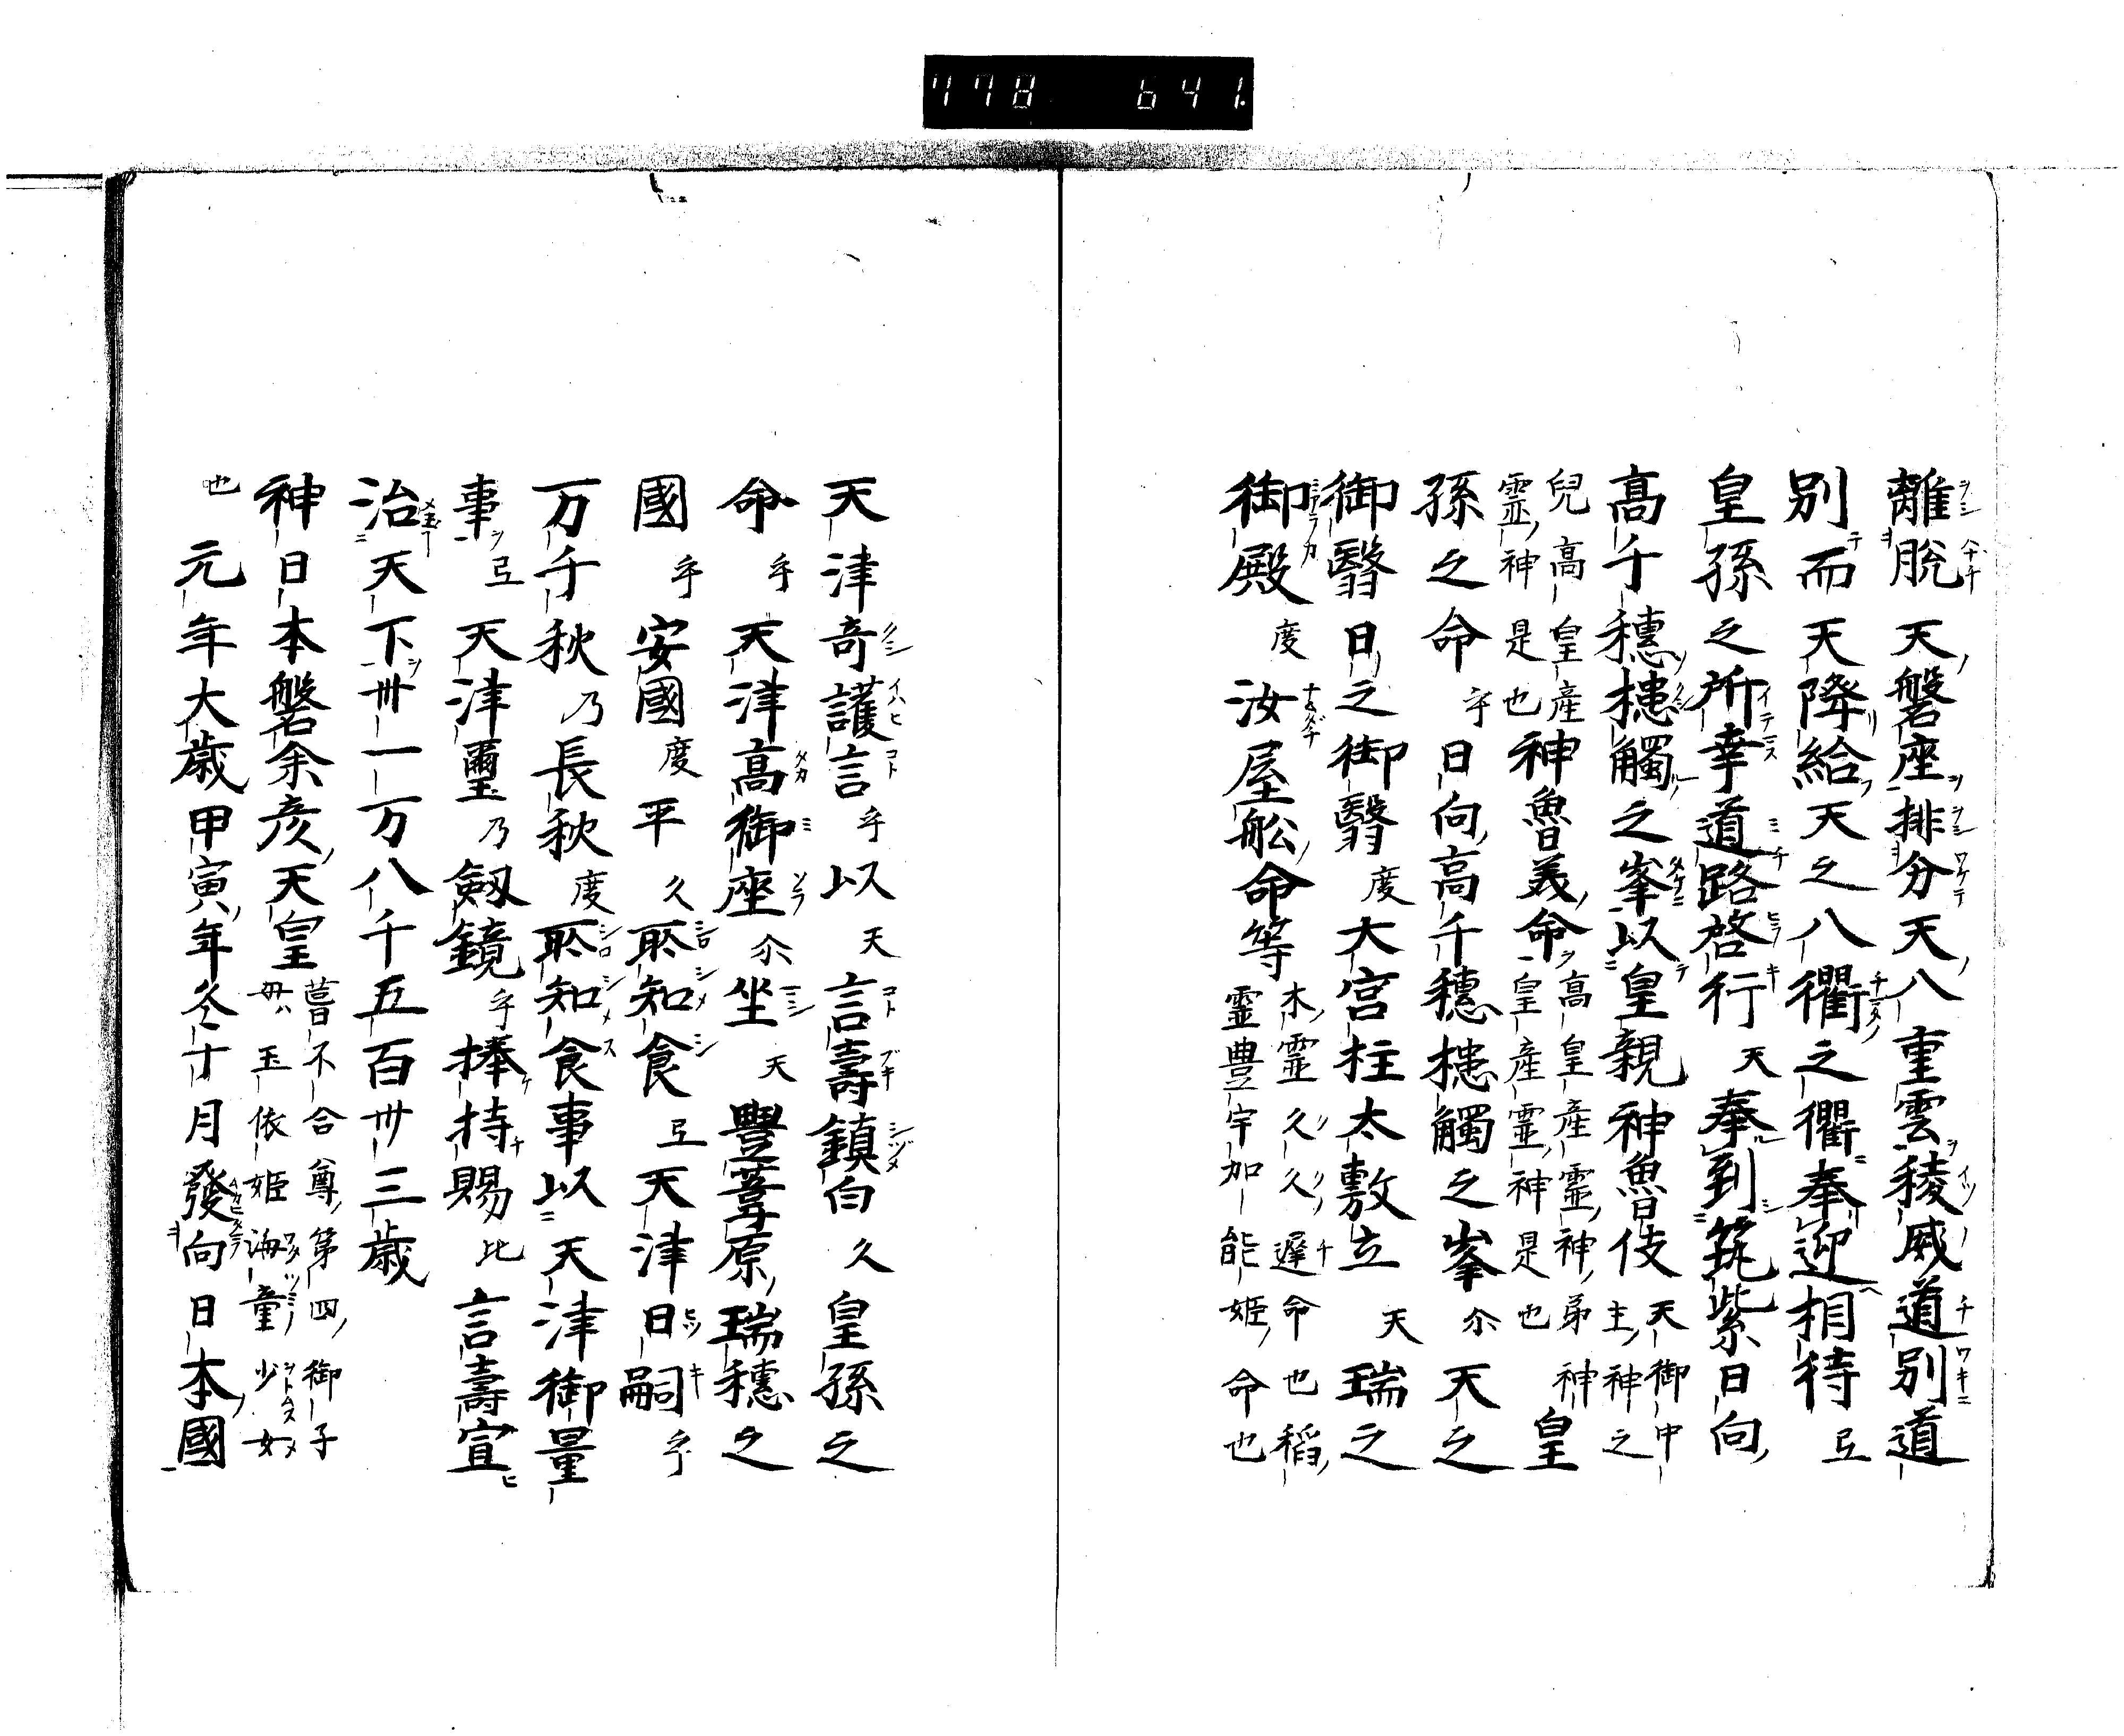 778 641.
離脱天磐座排分天八重雲稜威道別道
別而天降給天之八衢之衢奉迎相待弖
皇孫之所幸道路啓行天奉到筑紫日向
高千穗槵觸之峯以皇親神魯伎天御中主神之
兒高皇産靈神是也神魯美命高皇産靈神弟神皇産靈神是也皇
孫之命乎日向高千穗槵觸之峯尒天之
御翳日之御翳度大宮柱太敷立天瑞之
御殿度汝屋舩命等木靈久久遲命也稻靈豊宇加能姬命也
天津奇護言乎以天言壽鎮白久皇孫之
命乎天津高御座尒坐天豐葦原瑞穗之
國乎安國度平久所知食弖天津日嗣乎
万千秋乃長秋度所知食事以天津御量
事弖天津璽乃劔鏡乎捧持賜比言壽宣
治天下卅一万八千五百卅三歳
神日本磐余彦天皇葺不合尊第四御子母玉依姬海童少女
也元年大歳甲寅年冬十月發向日本國